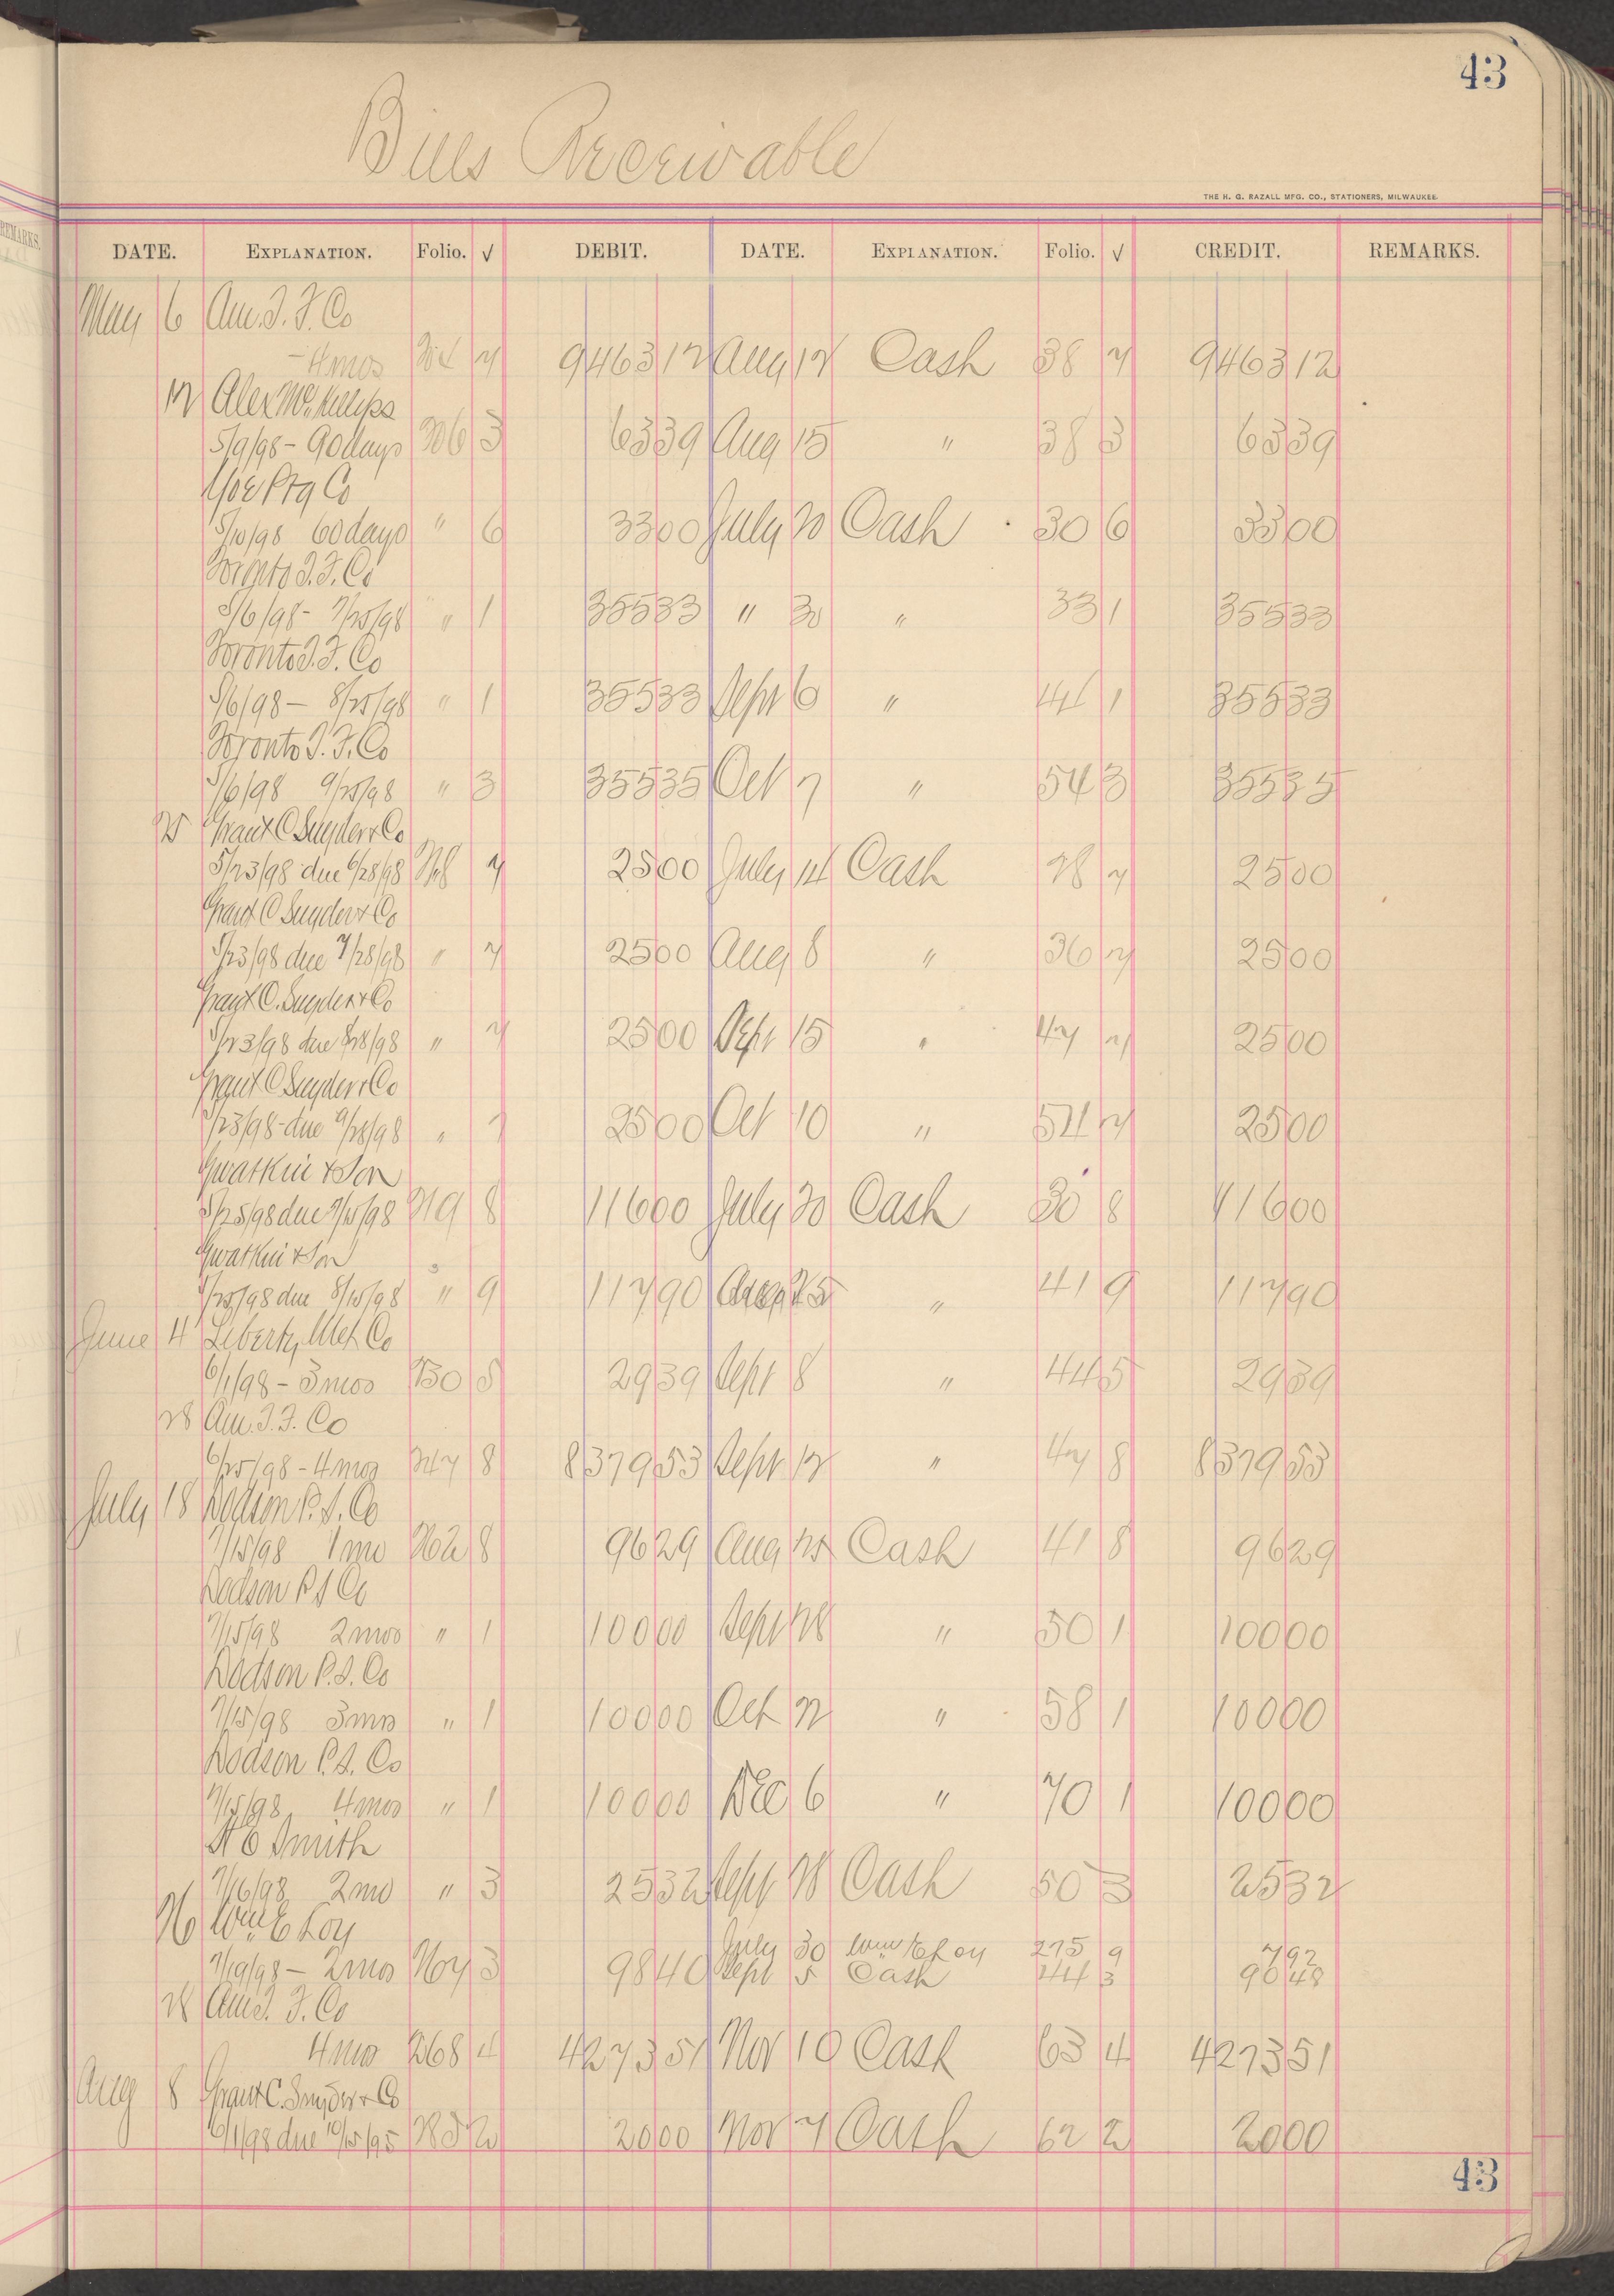 43
Bills Receivable
THE H. G. RAZALL MFG. CO., STATIONERS, MILWAUKEE.
DATE. EXPLANATION. Folio. √ DEBIT. DATE. EXPLANATION. Folio. √ CREDIT. REMARKS.
May 6 Am. T. F. Co
- 4 mos 7 946312 Aug 12 Cash 38 7 946312
12 Alex McKillips
5/9/98 - 90 days 206 3 6339 Aug 15 " 38 3 6339
Yoe Ptg Co
5/10/98 60 days " 6 3300 July 20 Cash 30 6 3300
Toronto T. F. Co
5/6/98 - 7/25/98 " 1 35533 " 30 " 33 1 35533
Toronto T. F. Co
5/6/98 - 8/25/98 " 1 35533 Sept 6 " 44 1 35533
Toronto T. F. Co
5/6/98 9/25/98 " 3 35535 Oct 7 " 54 3 35535
25 Grant C Snyder & Co
5/23/98 due 6/28/98 218 7 2500 July 14 Cash 28 7 2500
Grant C Snyder & Co
5/23/98 due 7/28/98 " 7 2500 Aug 8 " 36 7 2500
Grant C. Snyder & Co
5/23/98 due 8/28/98 " 7 2500 Sept 15 " 47 7 2500
Grant C Snyder & Co
5/23/98 - due 9/28/98 " 7 2500 Oct 10 " 54 7 2500
Gwatkin & Son
5/25/98 due 7/15/98 219 8 11600 July 20 Cash 30 8 11600
Gwatkin & Son
5/25/98 due 8/15/98 " 9 11790 Aug 25 " 41 9 11790
June 4 Liberty Met Co
6/1/98 - 3 mos 230 5 2939 Sept 8 " 44 5 2939
28 Am. T. F. Co
6/25/98 - 4 mos 247 8 837953 Sept 12 " 47 8 837953
July 18 Dodson P. S. Co
7/15/98 1 mo 262 8 9629 Aug 25 Cash 41 8 9629
Dodson P S Co
7/15/98 2 mos " 1 10000 Sept 28 " 50 1 10000
Dodson P. S. Co
7/15/98 3 mos " 1 10000 Oct 22 " 58 1 10000
Dodson P. S. Co
7/15/98 4 mos " 1 10000 Dec 6 " 70 1 10000
Smith
7/16/98 2 mo " 3 2532 Sept 28 Cash 50 3 2532
26 Wm E Loy
July 30 Wm E Loy 275 9 792
7/19/98 - 2 mos 267 3 9840 Sept 5 Cash 44 3 9048
28 Am T. F. Co
4 mo 268 4 427351 Nov 10 Cash 63 4 427351
Aug 8 Grant C. Snyder & Co
6/1/98 due 10/15/95 285 2 2000 Nov 7 Cash 62 2 2000
43